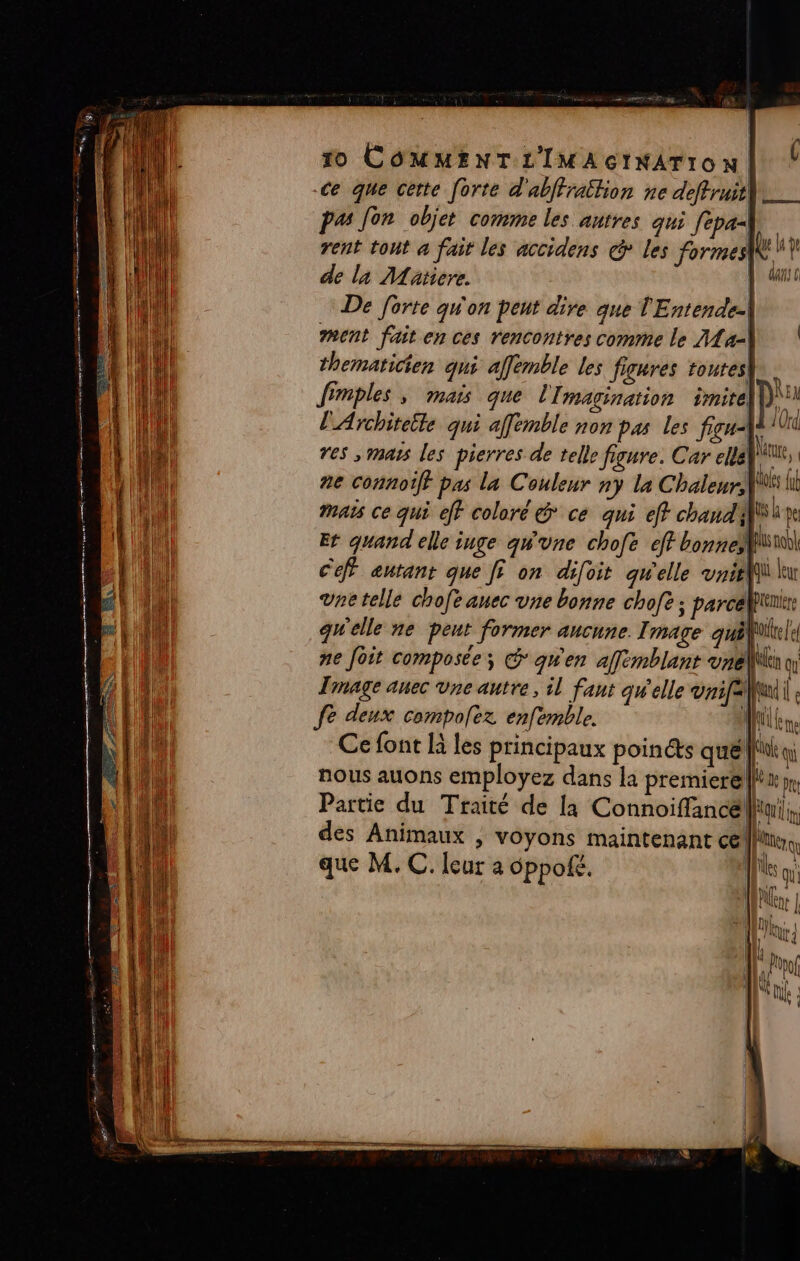 10 COMMENT L'IMAGINATION
ce que cette ſorte d'abſtraction ne deſtruit
pas ſon objet comme les autres qui ſepa-
rent tout a fait les accidens & les formes
de la Matiere.
De ſorte qu'on peut dire que l'Entende-
ment fait en ces rencontres comme le Ma-
thematicien qui aſſemble les figures toutes
ſimples, mais que l'Imagination imite
l'Architecte qui aſſemble non pas les figu-
res, mais les pierres de telle figure. Car elle
ne connoiſt pas la Couleur ny la Chaleur,
mais ce qui eſt coloré & ce qui eſt chaud;
Et quand elle iuge qu'vne choſe eſt bonne,
c'eſt autant que ſi on diſoit qu'elle vnit
vne telle choſe auec vne bonne choſe; parce
qu'elle ne peut former aucune Image qui
ne ſoit composée; & qu'en aſſemblant vne
Image auec vne autre, il faut qu'elle vniſſe
ſe deux compoſez enſemble.
Ce ſont là les principaux poincts que
nous auons employez dans la premiere
Partie du Traité de la Connoiſſance
des Animaux, voyons maintenant ce
que M. C. leur a oppoſé.